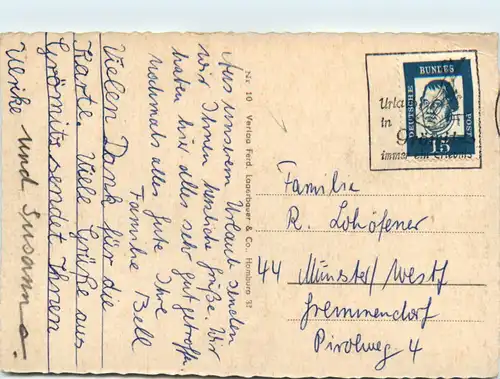 Aus unserem Urlaub senden
wir Ihnen herzliche Grüße. Wir
haben hier alles sehr gut getroffen
Nochmals alles gute Ihre
Familie Bell
Vielen Dank für die
Karte. Viele Grüße aus
Grömitz sendet Ihnen
Ulrike und Susanne.
Nr. 10 Verlag Ferd. Lagerbauer & Co., Hamburg
DEUTSCHE
BUNDES
POST
15
Urla
in
immer ein Erlebnis
Familie
R. Lohöfener
44 Münster/Westf
Gremmendorf
Pirolweg 4